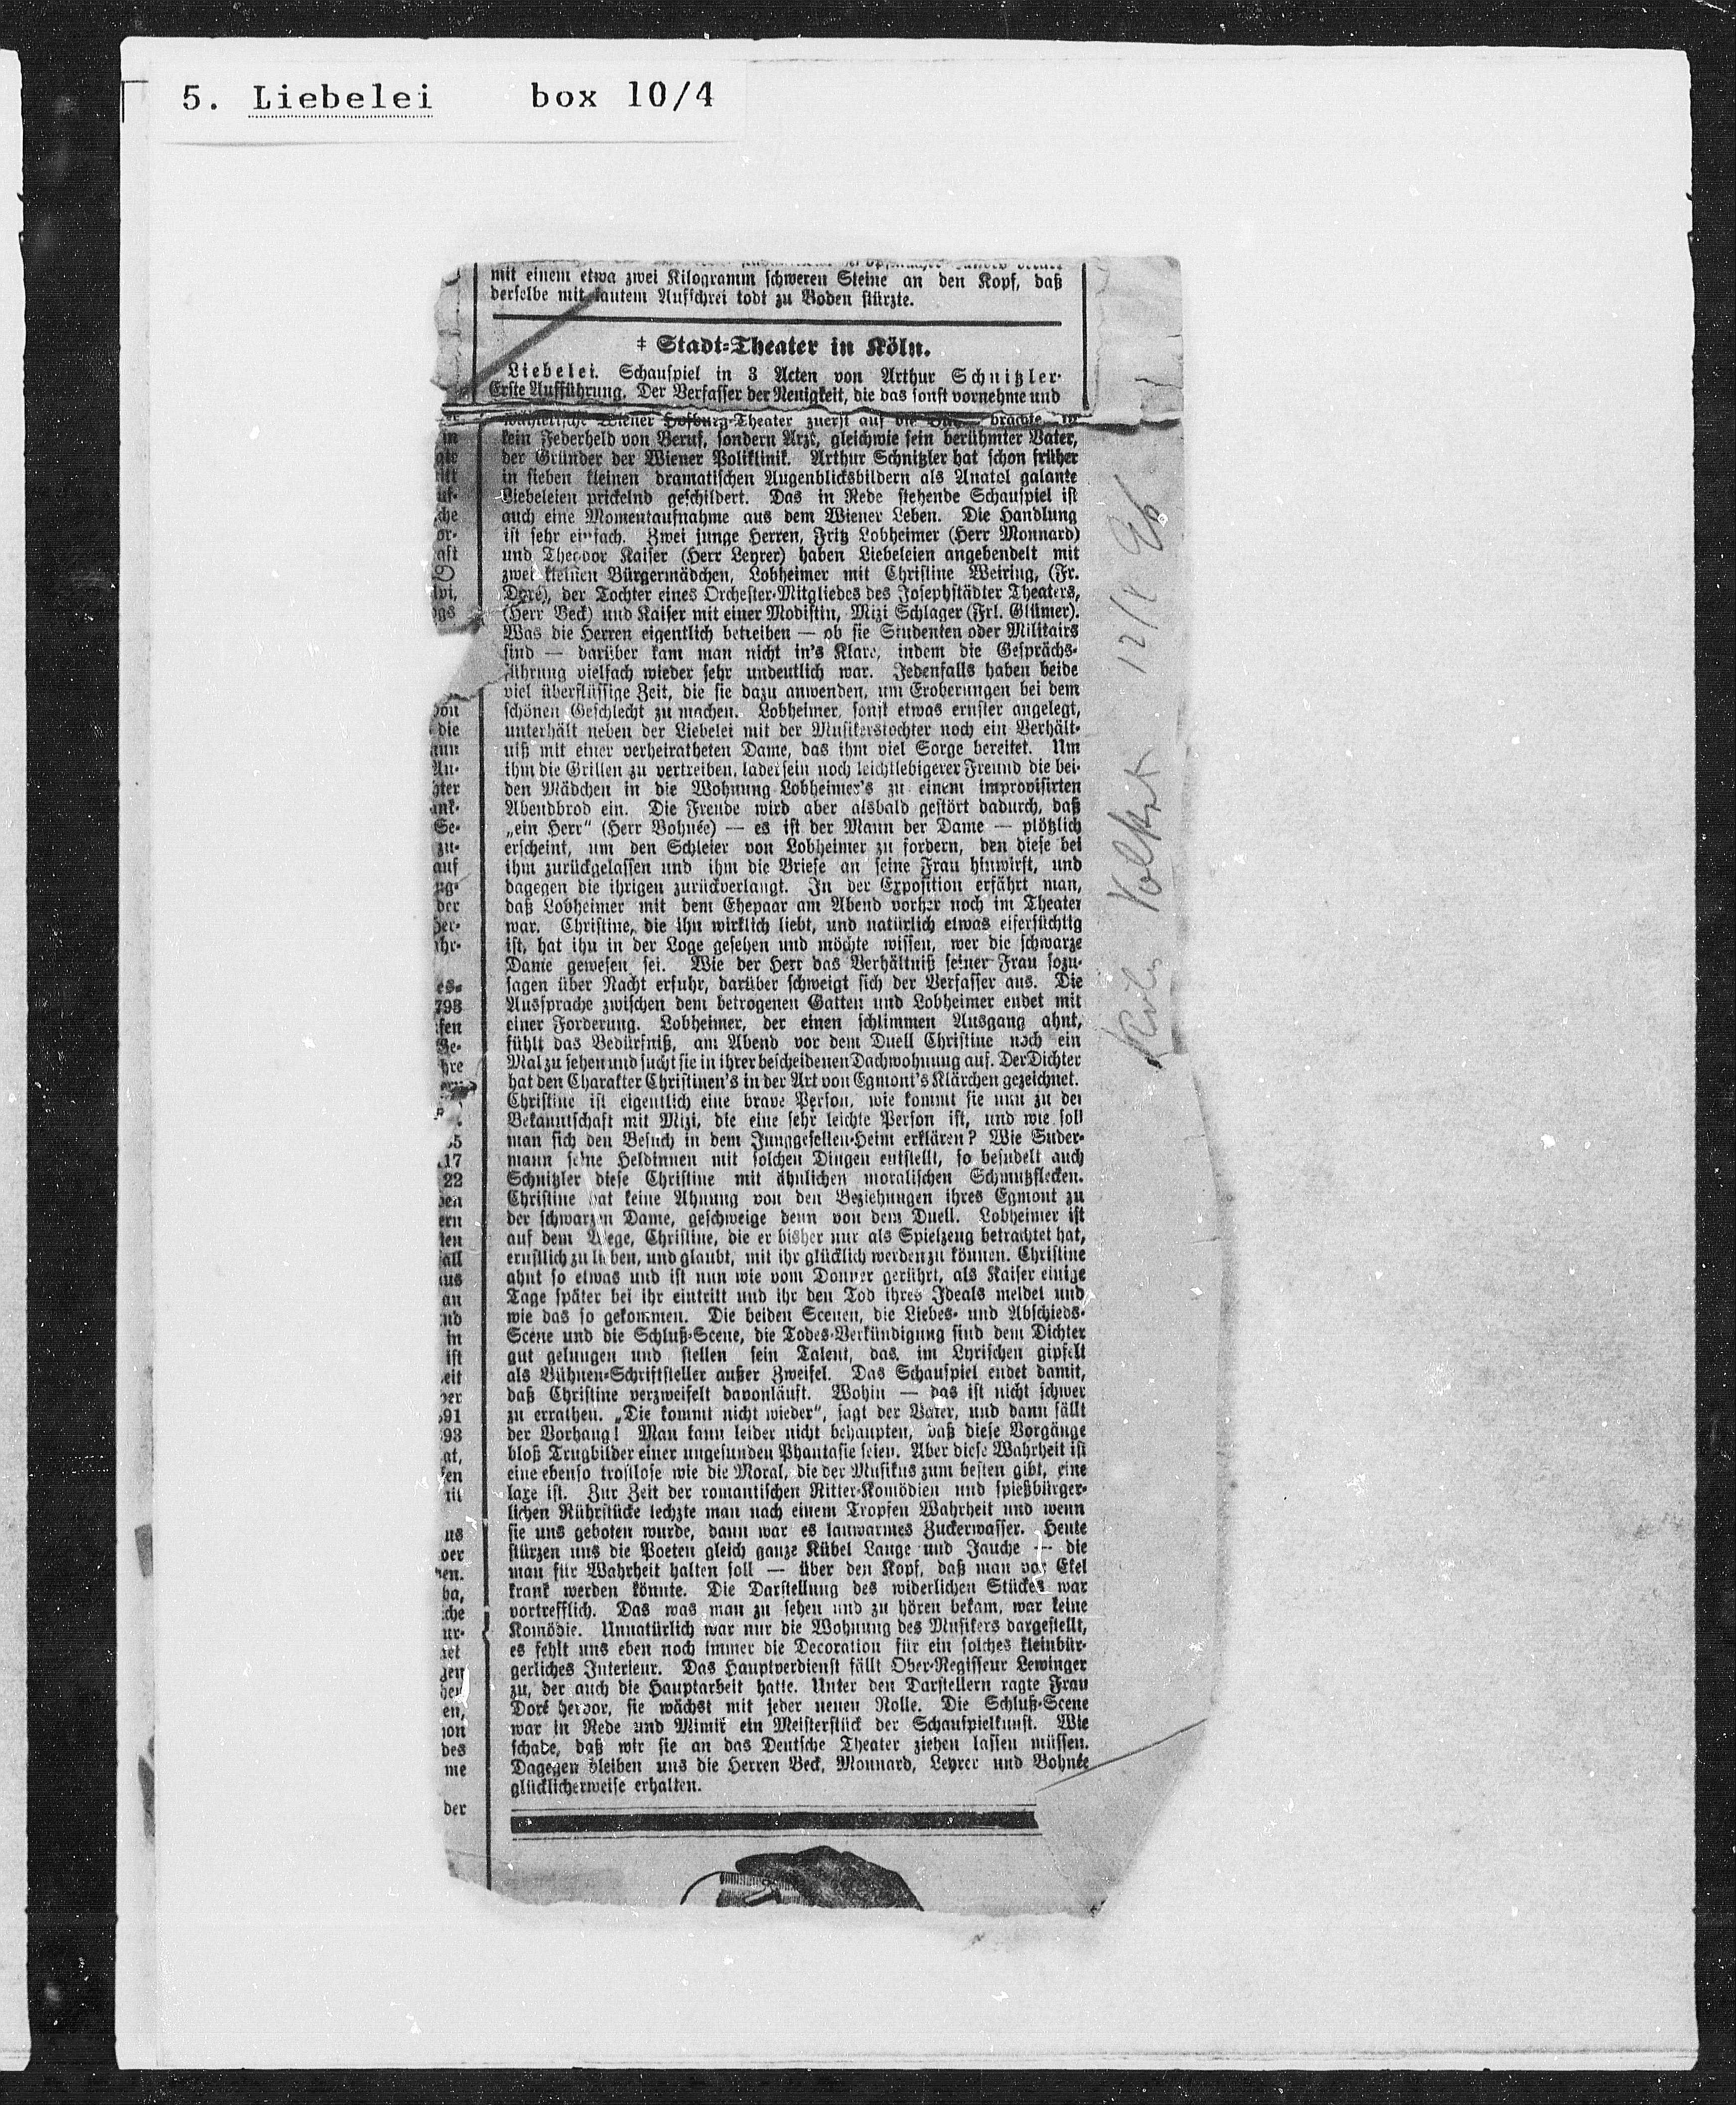 5. Liebelei box 10/4
mit einem etwa zwei Kilogramm schweren Steine an den Kopf, daß
derselbe mit lautem Aufschrei todt zu Boden stürzte.
‡ Stadt-Theater in Köln.
Liebelei. Schauspiel in 3 Acten von Arthur Schnitzler.
Erste Aufführung. Der Verfasser der Neuigkeit, die das sonst vornehme und
wählerische Wiener Hofburg-Theater zuerst auf die brachte, ist
kein Federheld von Beruf, sondern Arzt, gleichwie sein berühmter Vater,
der Gründer der Wiener Poliklinik. Arthur Schnitzler hat schon früher
in sieben kleinen dramatischen Augenblicksbildern als Anatol galante
Liebeleien prickelnd geschildert. Das in Rede stehende Schauspiel ist
auch eine Momentaufnahme aus dem Wiener Leben. Die Handlung
ist sehr einfach. Zwei junge Herren, Fritz Lobheimer (Herr Monnard)
und Theodor Kaiser (Herr Leyrer) haben Liebeleien angebendelt mit
zwei kleinen Bürgermädchen, Lobheimer mit Christine Weiring, (Fr.
Doré), der Tochter eines Orchester-Mitgliedes des Josephstädter Theaters,
(Herr Beck) und Kaiser mit einer Modistin, Mizi Schlager (Frl. Glümer).
Was die Herren eigentlich betreiben — ob sie Studenten oder Militairs
sind — darüber kam man nicht in's Klare, indem die Gesprächs-
führung vielfach wieder sehr undeutlich war. Jedenfalls haben beide
viel überflüssige Zeit, die sie dazu anwenden, um Eroberungen bei dem
schönen Geschlecht zu machen. Lobheimer, sonst etwas ernster angelegt,
unterhält neben der Liebelei mit der Musikerstochter noch ein Verhält-
niß mit einer verheiratheten Dame, das ihm viel Sorge bereitet. Um
ihm die Grillen zu vertreiben, ladet sein noch leichtlebigerer Freund die bei-
den Mädchen in die Wohnung Lobheimer's zu einem improvisirten
Abendbrod ein. Die Freude wird aber alsbald gestört dadurch, daß
„ein Herr“ (Herr Bohnée) — es ist der Mann der Dame — plötzlich
erscheint, um den Schleier von Lobheimer zu fordern, den diese bei
ihm zurückgelassen und ihm die Briefe an seine Frau hinwirft, und
dagegen die ihrigen zurückverlangt. In der Exposition erfährt man,
daß Lobheimer mit dem Ehepaar am Abend vorher noch im Theater
war. Christine, die ihn wirklich liebt, und natürlich etwas eifersüchtig
ist, hat ihn in der Loge gesehen und möchte wissen, wer die schwarze
Dame gewesen sei. Wie der Herr das Verhältniß seiner Frau sozu-
sagen über Nacht erfuhr, darüber schweigt sich der Verfasser aus. Die
Aussprache zwischen dem betrogenen Gatten und Lobheimer endet mit
einer Forderung. Lobheimer, der einen schlimmen Ausgang ahnt,
fühlt das Bedürfniß, am Abend vor dem Duell Christine noch ein
Mal zu sehen und sucht sie in ihrer bescheidenen Dachwohnung auf. Der Dichter
hat den Charakter Christinen's in der Art von Egmont's Klärchen gezeichnet.
Christine ist eigentlich eine brave Person, wie kommt sie nun zu der
Bekanntschaft mit Mizi, die eine sehr leichte Person ist, und wie soll
man sich den Besuch in dem Junggesellen-Heim erklären? Wie Suder-
mann seine Heldinnen mit solchen Dingen entstellt, so besudelt auch
Schnitzler diese Christine mit ähnlichen moralischen Schmutzflecken.
Christine hat keine Ahnung von den Beziehungen ihres Egmont zu
der schwarzen Dame, geschweige denn von dem Duell. Lobheimer ist
auf dem Wege, Christine, die er bisher nur als Spielzeug betrachtet hat,
ernstlich zu lieben, und glaubt, mit ihr glücklich werden zu können. Christine
ahnt so etwas und ist nun wie vom Donner gerührt, als Kaiser einige
Tage später bei ihr eintritt und ihr den Tod ihres Ideals meldet und
wie das so gekommen. Die beiden Scenen, die Liebes- und Abschieds-
Scene und die Schluß-Scene, die Todes-Verkündigung sind dem Dichter
gut gelungen und stellen sein Talent, das im Lyrischen gipfelt
als Bühnen-Schriftsteller außer Zweifel. Das Schauspiel endet damit,
daß Christine verzweifelt davonläuft. Wohin — das ist nicht schwer
zu errathen. „Die kommt nicht wieder“, sagt der Vater, und dann fällt
der Vorhang! Man kann leider nicht behaupten, daß diese Vorgänge
bloß Trugbilder einer ungesunden Phantasie seien. Aber diese Wahrheit ist
eine ebenso trostlose wie die Moral, die der Musikus zum besten gibt, eine
laxe ist. Zur Zeit der romantischen Ritter-Komödien und spießbürger-
lichen Rührstücke lechzte man nach einem Tropfen Wahrheit und wenn
sie uns geboten wurde, dann war es lauwarmes Zuckerwasser. Heute
stürzen uns die Poeten gleich ganze Kübel Lauge und Jauche — die
man für Wahrheit halten soll — über den Kopf, daß man vor Ekel
krank werden könnte. Die Darstellung des widerlichen Stückes war
vortrefflich. Das was man zu sehen und zu hören bekam, war keine
Komödie. Unnatürlich war nur die Wohnung des Musikers dargestellt,
es fehlt uns eben noch immer die Decoration für ein solches kleinbür-
gerliches Interieur. Das Hauptverdienst fällt Ober-Regisseur Lewinger
zu, der auch die Hauptarbeit hatte. Unter den Darstellern ragte Frau
Doré hervor, sie wächst mit jeder neuen Rolle. Die Schluß-Scene
war in Rede und Mimik ein Meisterstück der Schauspielkunst. Wie
schade, daß wir sie an das Deutsche Theater ziehen lassen müssen.
Dagegen bleiben uns die Herren Beck, Monnard, Leyrer und Bohnée
glücklicherweise erhalten.